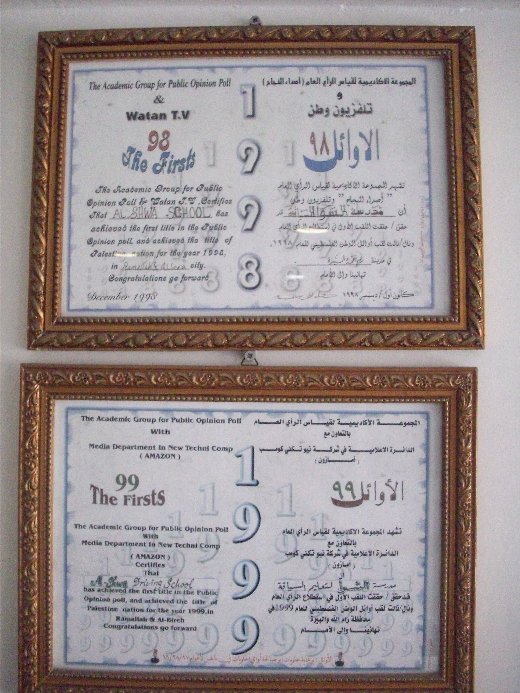 The Academic Group for Public Opinion Poll
&
Watan T.V
98
The Firsts
The Academic Group for Public
Opinion Poll & Watan T.V Certifies
That AL SHWA SCHOOL has
achieved the first title in the Public
Opinion poll, and achieved the title of
Palestine nation for the year 1998,
in Ramallah & Al-Bireh city.
Congratulations go forward
December 1998
1
9
9
8
المجموعة الأكاديمية لقياس الرأي العام
و
تلفزيون وطن
الاوائل ٩٨
تشهر المجموعة الأكاديمية لقياس الرأي العام
وتلفزيون وطني
أن مدرسة
تهانينا وإلى الأمام
كانون أول / ديسمبر ١٩٩٨
The Academic Group for Public Opinion Poll
With
Media Department In New Techni Comp
( AMAZON )
99
The Firsts
The Academic Group for Public Opinion Poll
With
Media Department In New Techni Comp
( AMAZON )
Certifies
That
Al-Shwa Driving School
has achieved the first title in the Public
Opinion poll, and achieved the title of
Palestine nation for the year 1999,in
Ramallah & Al-Bireh
Congratulations go forward
1
9
9
9
المجموعة الأكاديمية لقياس الرأي العام
بالتعاون مع
الدائرة الاعلامية في شركة نيو تكني كومب
( أمازون )
الأوائل ٩٩
تشهد المجموعة الأكاديمية لقياس الرأي العام
بالتعاون مع
الدائرة الاعلامية في شركة نيو تكني كومب
( امازون )
أن
مدرسة الشوا لتعليم السياقة
قد حقق / حققت اللقب الأول في استطلاع الرأي العام
ونال/نالت لقب أوائل الوطن الفلسطيني للعام 1999في
محافظة رام الله والبيرة
تهانينا وإلى الامام